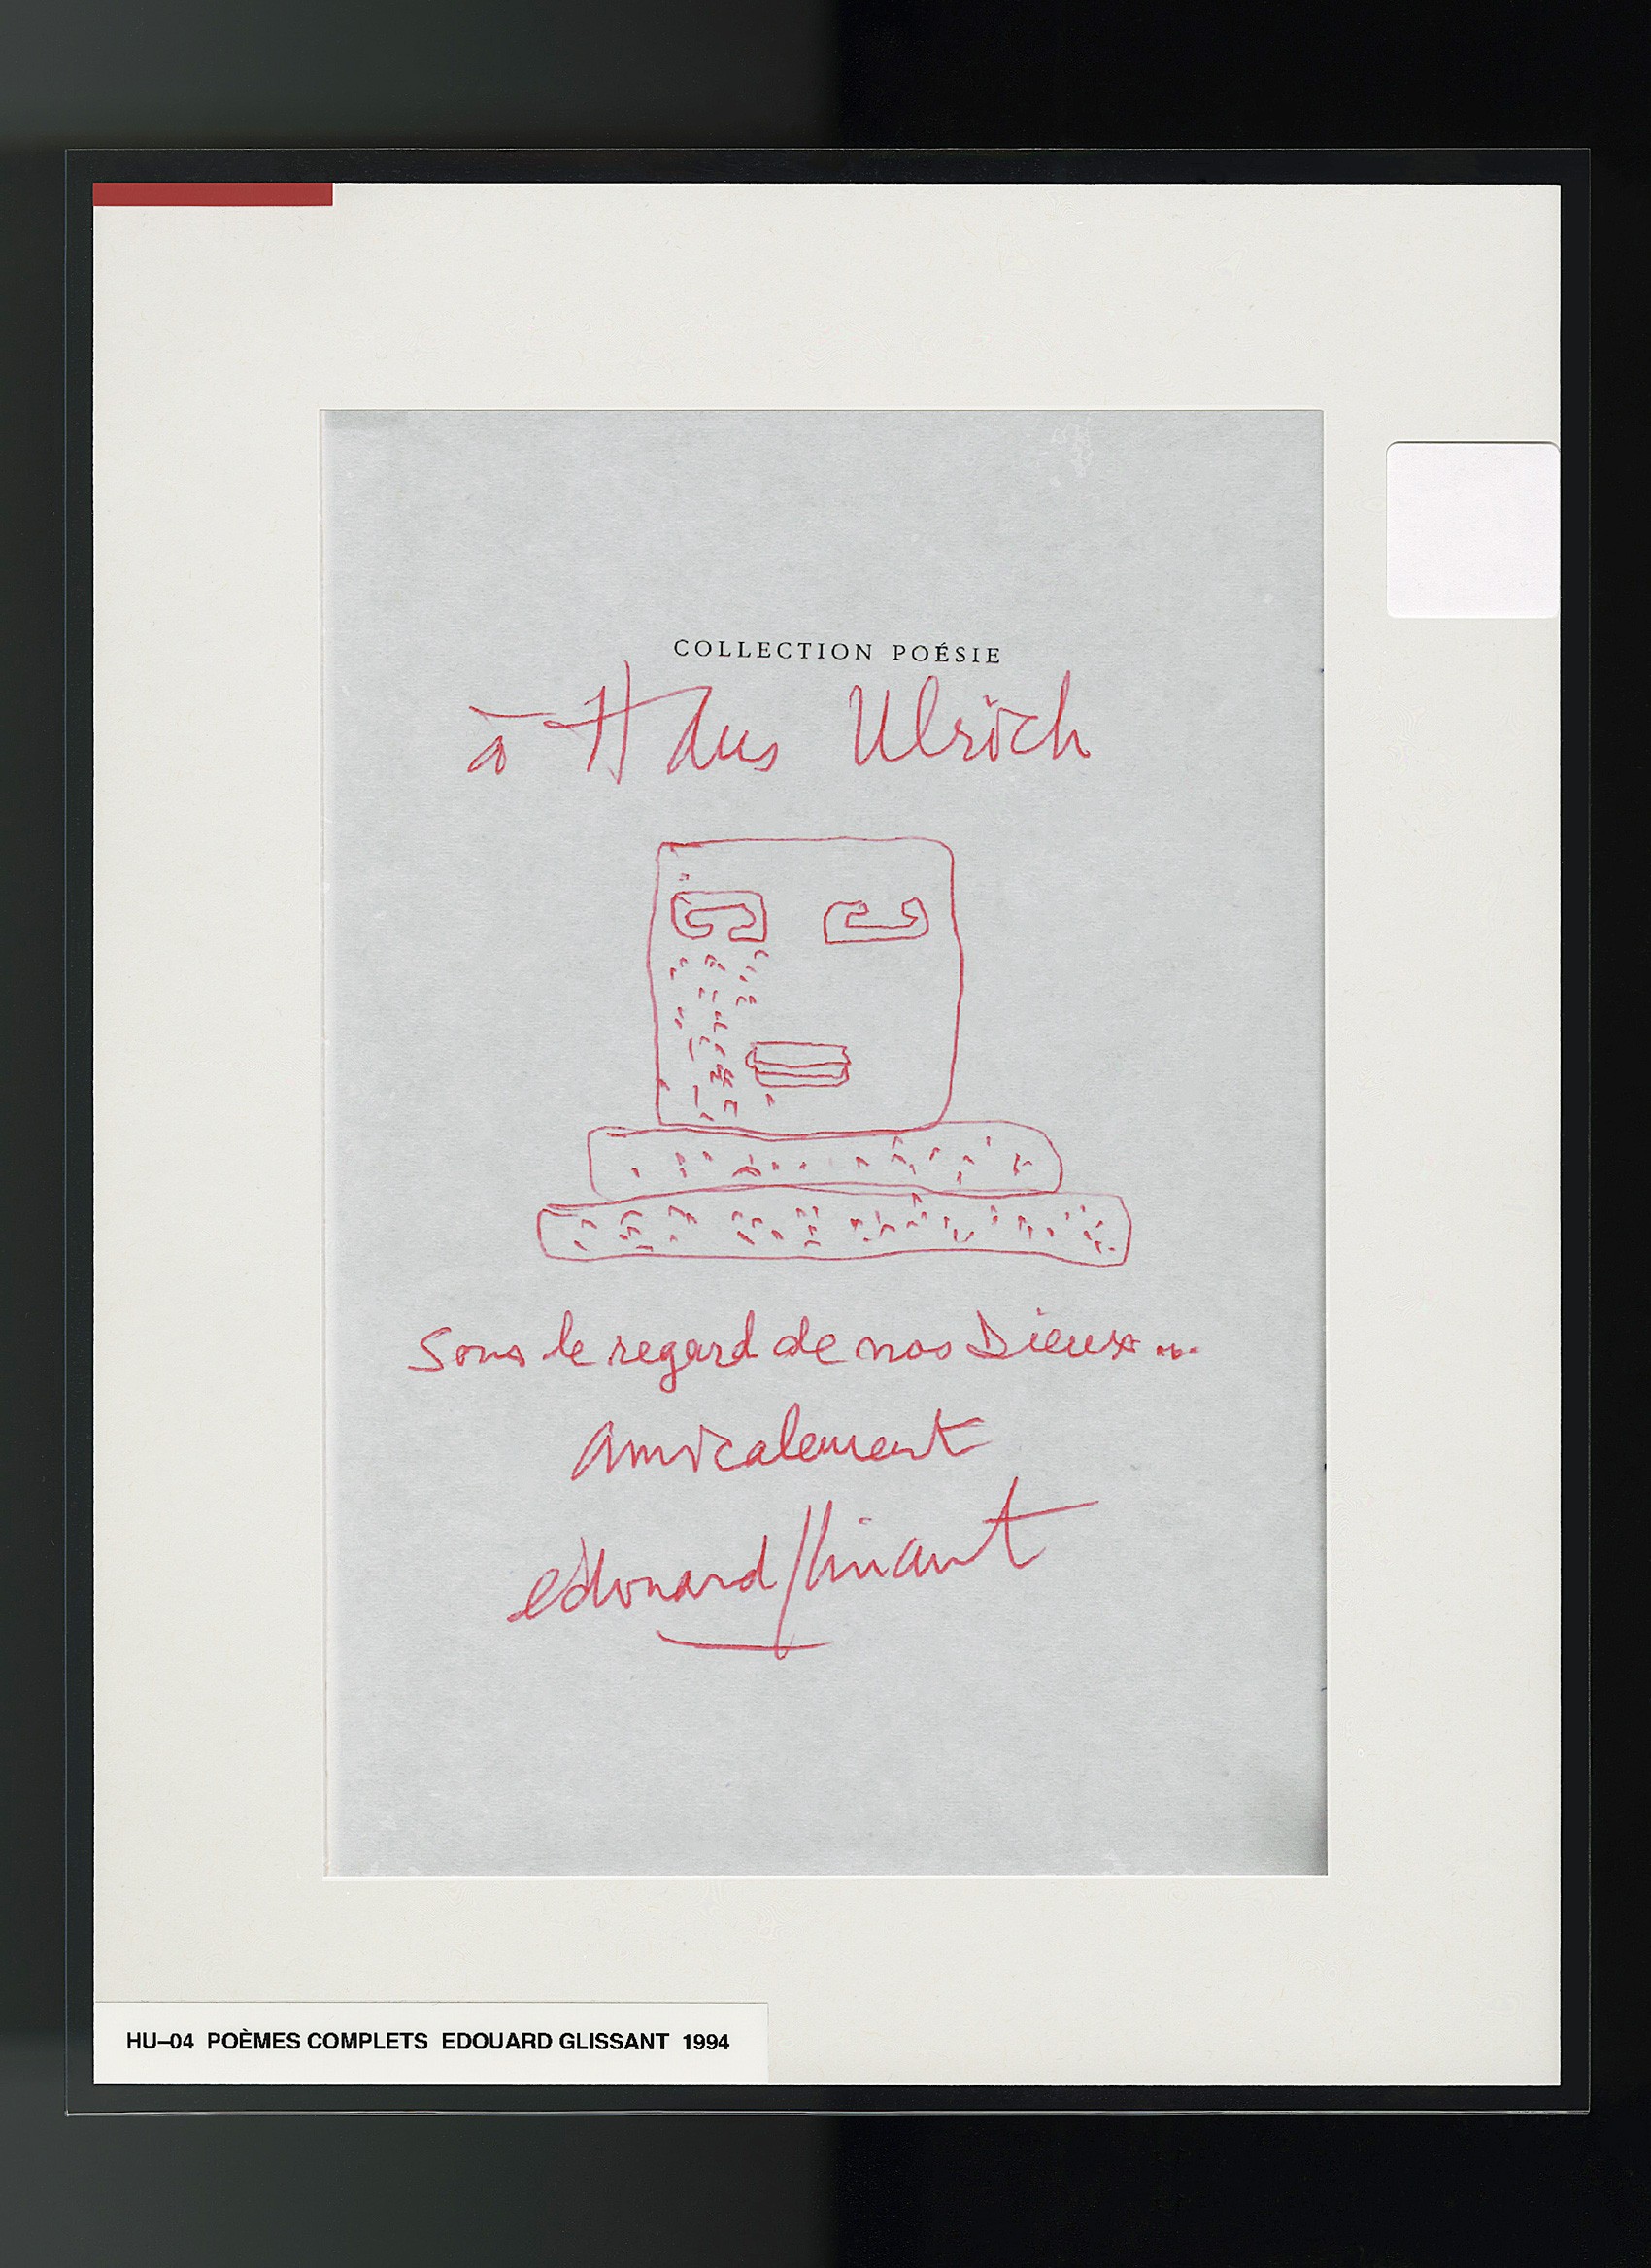 COLLECTION POÉSIE
à Hans Ulrich
Sous le regard de nos Dieux...
amicalement
edouard glissant
HU–04 POÈMES COMPLETS EDOUARD GLISSANT 1994